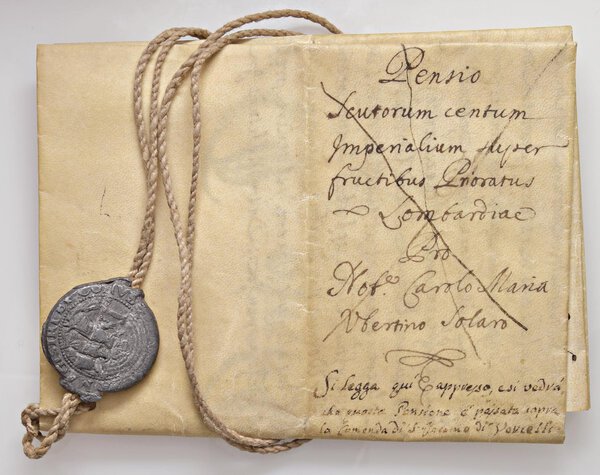 Pensio
Scutorum centum
Imperialium super
fructibus Prioratus
Lombardiae
Pro
Nob.e Carolo Maria
Ubertino Solaro
Si legga qui appresso, e si vedrà,
che questa Pensione è passata sopra
la Comenda di S. Giacomo di Vercelli